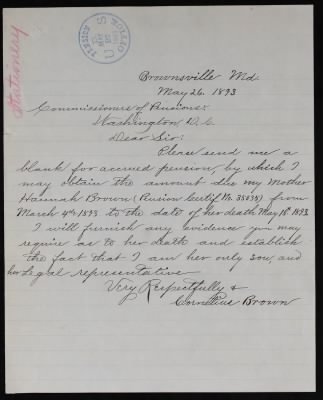 Stationery
U S
Brownsville Md.
May 26. 1893
Commissioner of Pensions.
Washington D.C.
Dear Sir:
Please send me a
blank for accrued pension, by which I
may obtain the amount due my Mother
Hannah Brown (Pension Certif. No.
March 4th 1893 to the date of her death May 18 1893.
I will furnish any evidence you may
require as to her death and establish
the fact that I am her only son, and
her legal representative
Very Respectfully &
Cornelius Brown